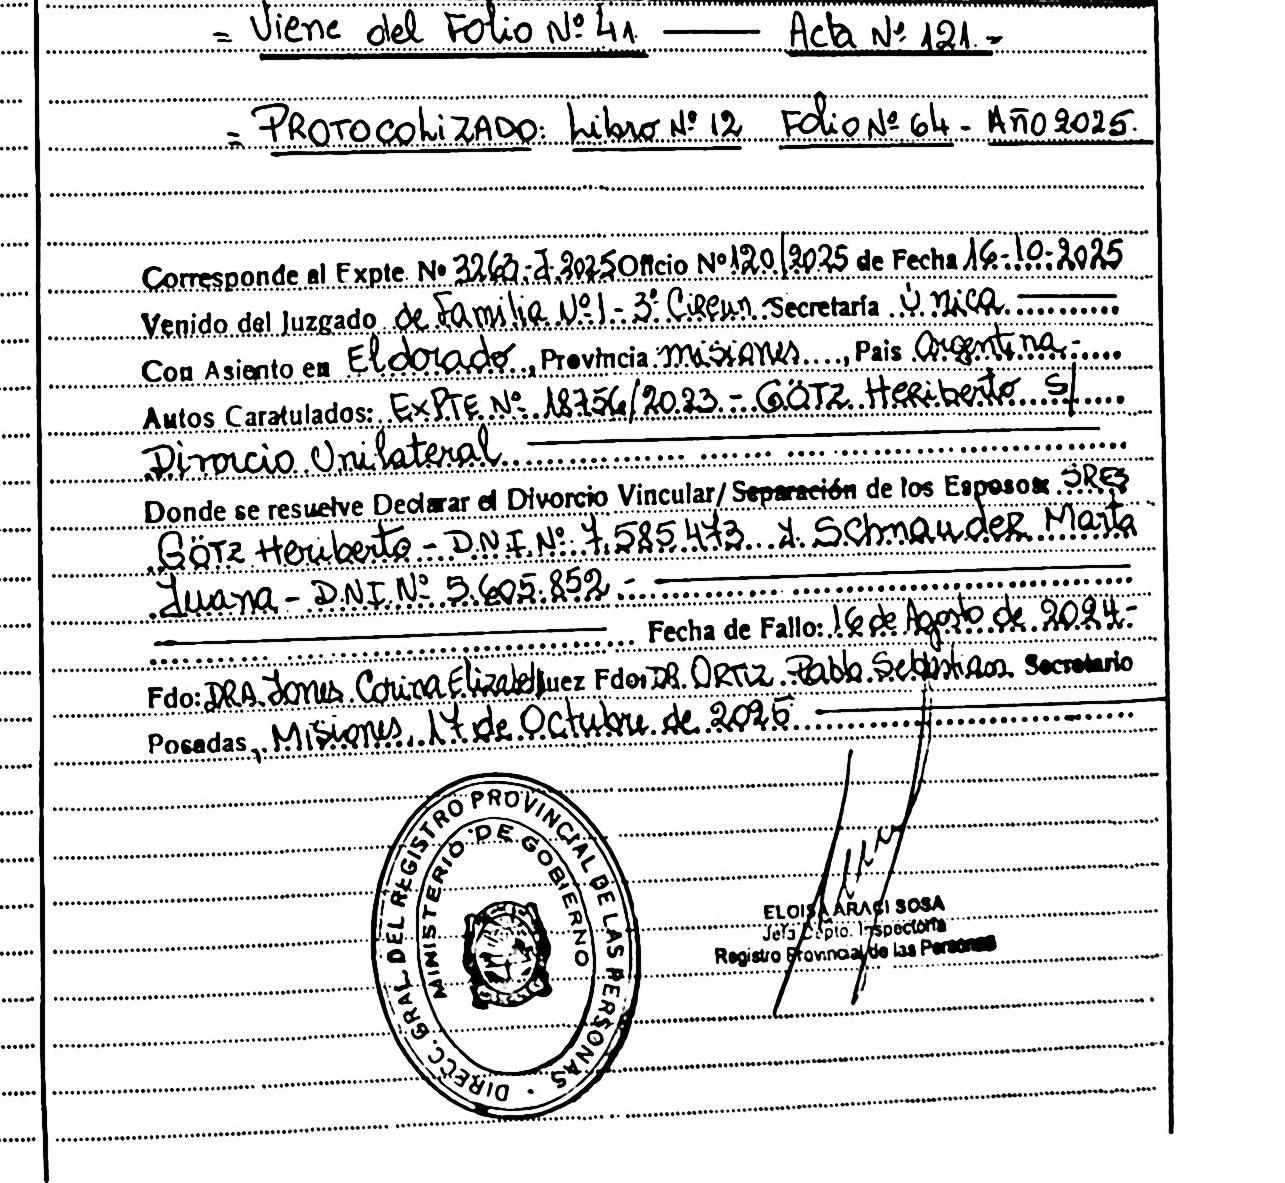 = Viene del Folio Nº 41 — Acta Nº 121.-
= PROTOCOLIZADO: Libro Nº 12 Folio Nº 64 - Año 2025.
Corresponde al Expte. Nº 3263-J-2025 Oficio Nº 120/2025 de Fecha 16-10-2025
Venido del Juzgado de Familia Nº 1 - 3º Circun. Secretaría Única.
Con Asiento en Eldorado, Provincia Misiones, Pais Argentina.-
Autos Caratulados: EXPTE Nº 18756/2023 - GÖTZ Heriberto S/
Divorcio Unilateral
Donde se resuelve Declarar el Divorcio Vincular/Separación de los Esposos: SRES
GÖTZ Heriberto - D.N.I. Nº 7.585.473 y Schnauder Marta
Juana - D.N.I. Nº 5.605.852 -
Fecha de Fallo: 16 de Agosto de 2024-
Fdo: DRA. Jones Corina Elizabet Juez Fdo: DR. ORTIZ Pablo Sebastian Secretario
Posadas, Misiones, 17 de Octubre de 2025
DIRECC. GRAL. DEL REGISTRO PROVINCIAL DE LAS PERSONAS
MINISTERIO DE GOBIERNO
ELOISA ARACI SOSA
Jefa Dpto. Inspectoría
Registro Provincial de las Personas